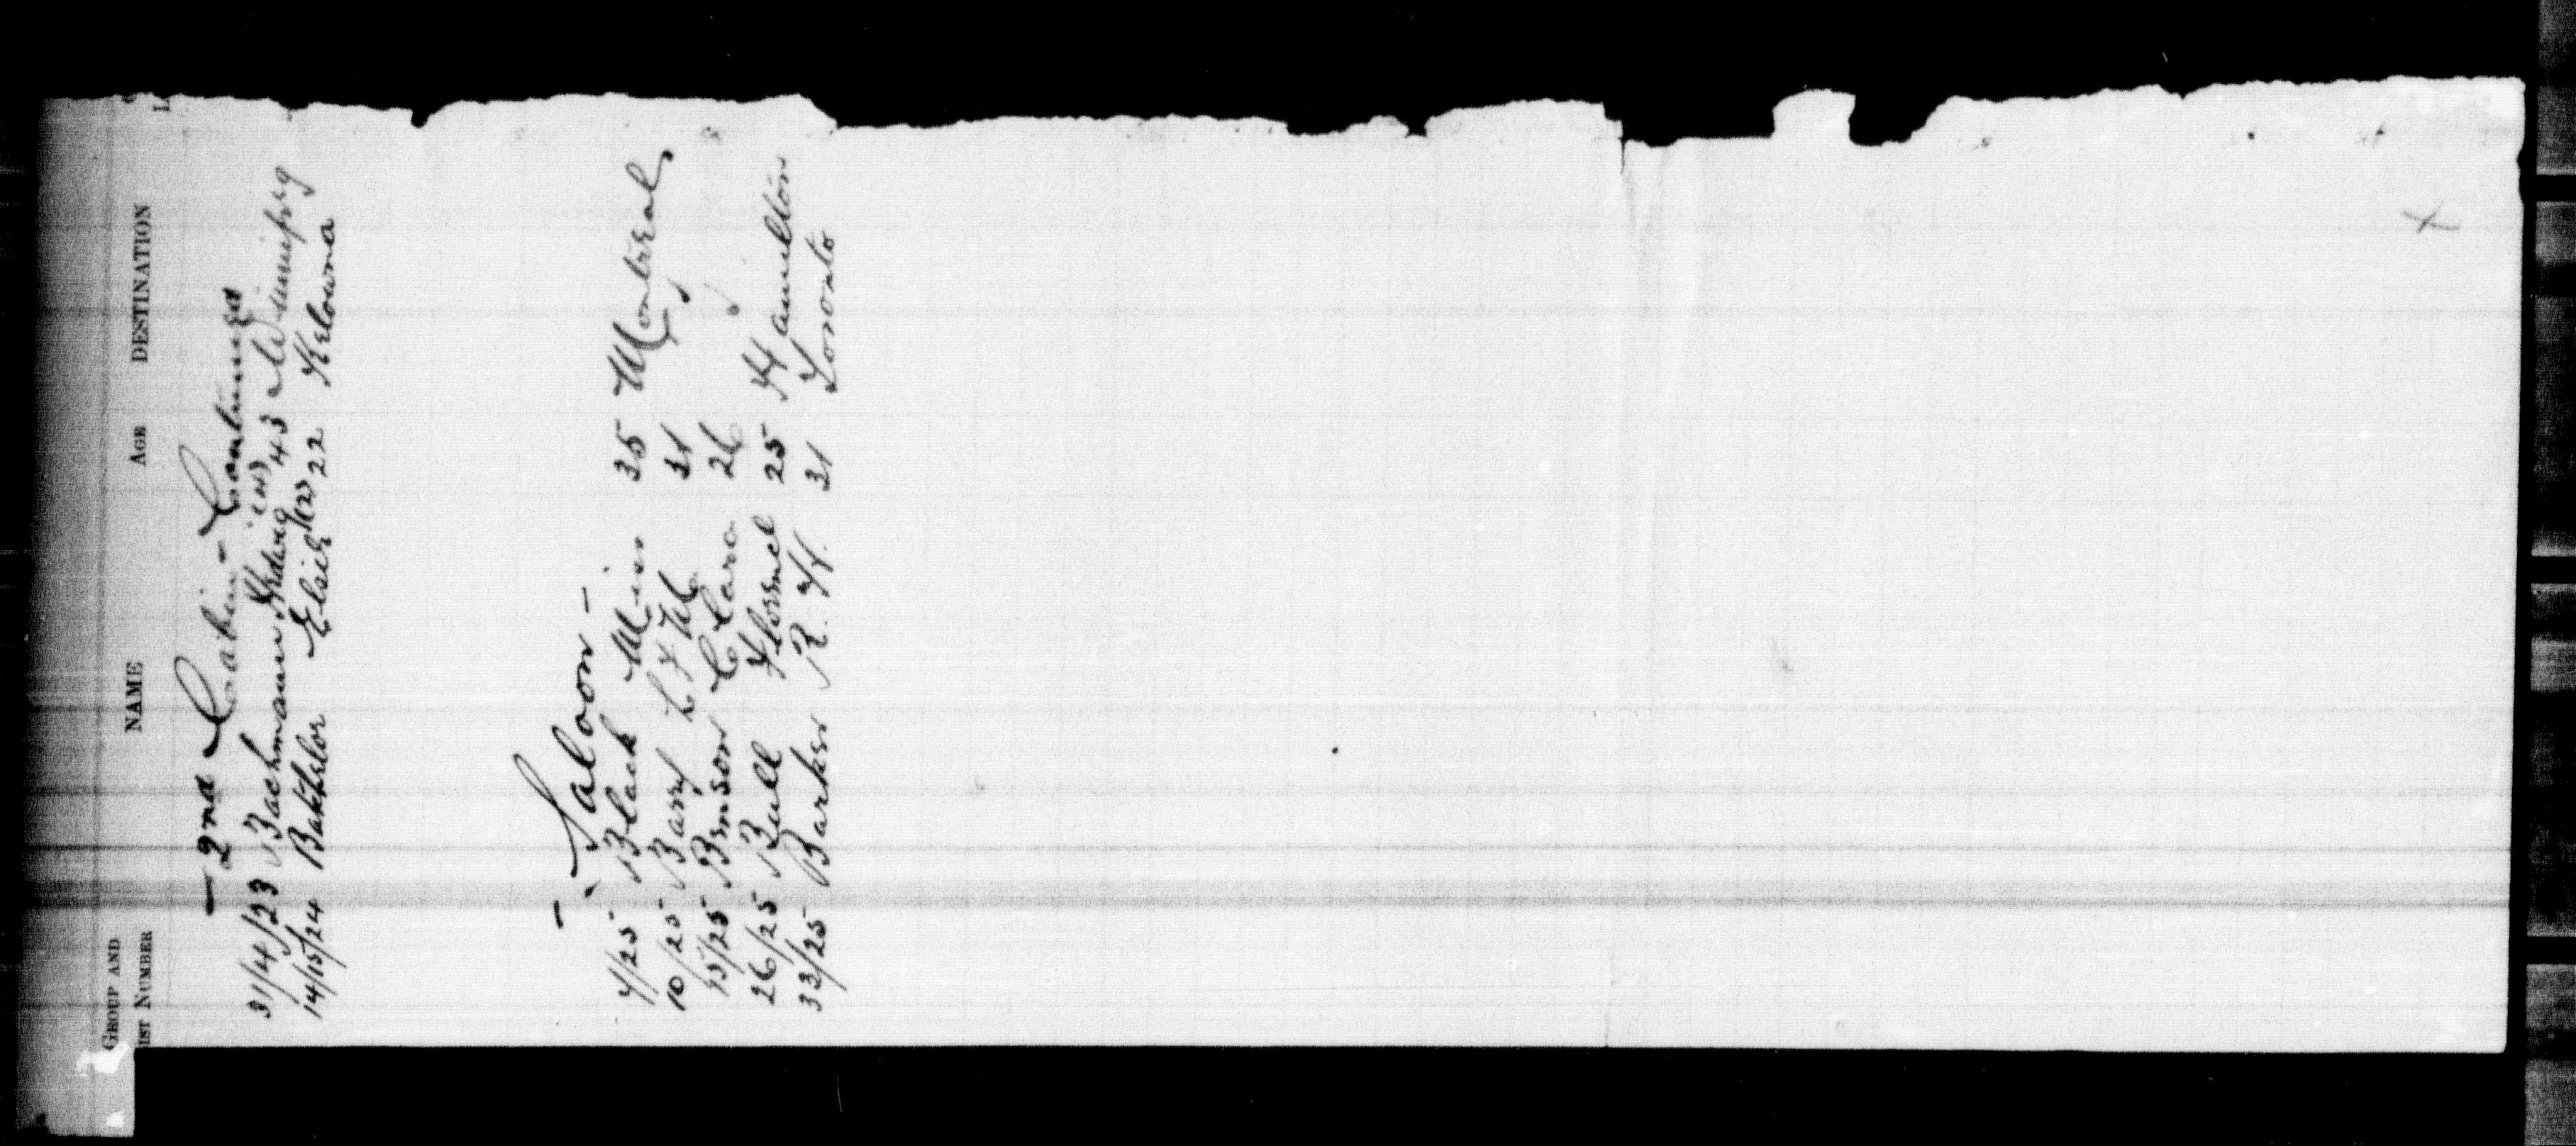 GROUP AND
IST NUMBER NAME AGE DESTINATION
— 2nd Cabin — Continued
31/4/23 Bachmann Hedwig (w) 43 Winnipeg
14/15/24 Batchelor Elsie (w) 22 Kelowna
— Saloon —
4/25 Black Miss 35 Montreal
10/25 Barry L F 31 "
15/25 Brnson Clara 26 "
26/25 Bull Florence 25 Hamilton
33/25 Barker R. H. 31 Toronto
X